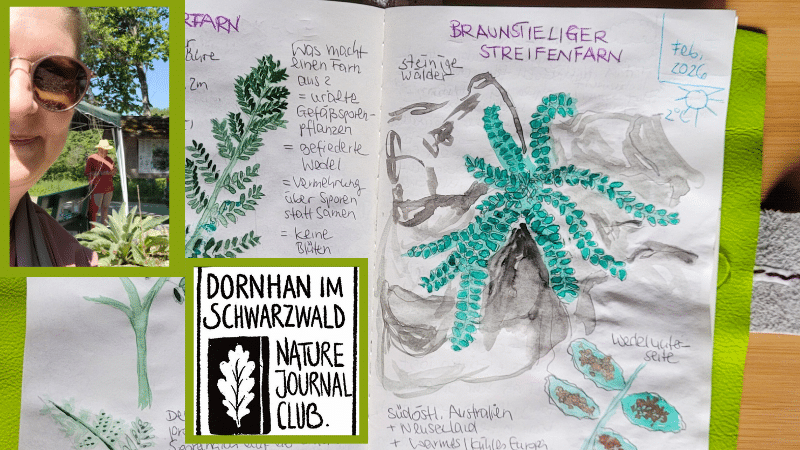 RFARN
2m
Was macht
einen Farn
aus?
= uralte
Gefäßsporen-
pflanzen
= gefiederte
Wedel
= Vermehrung
über Sporen
statt Samen
= keine
Blüten
BRAUNSTIELIGER
STREIFENFARN
steinige
Wälder
Feb.
2026
2°C
Wedelunter-
seite
Südöstl. Australien
+ Neuseeland
+ warmes/kühles Europa
DORNHAN IM
SCHWARZWALD
NATURE
JOURNAL
CLUB.